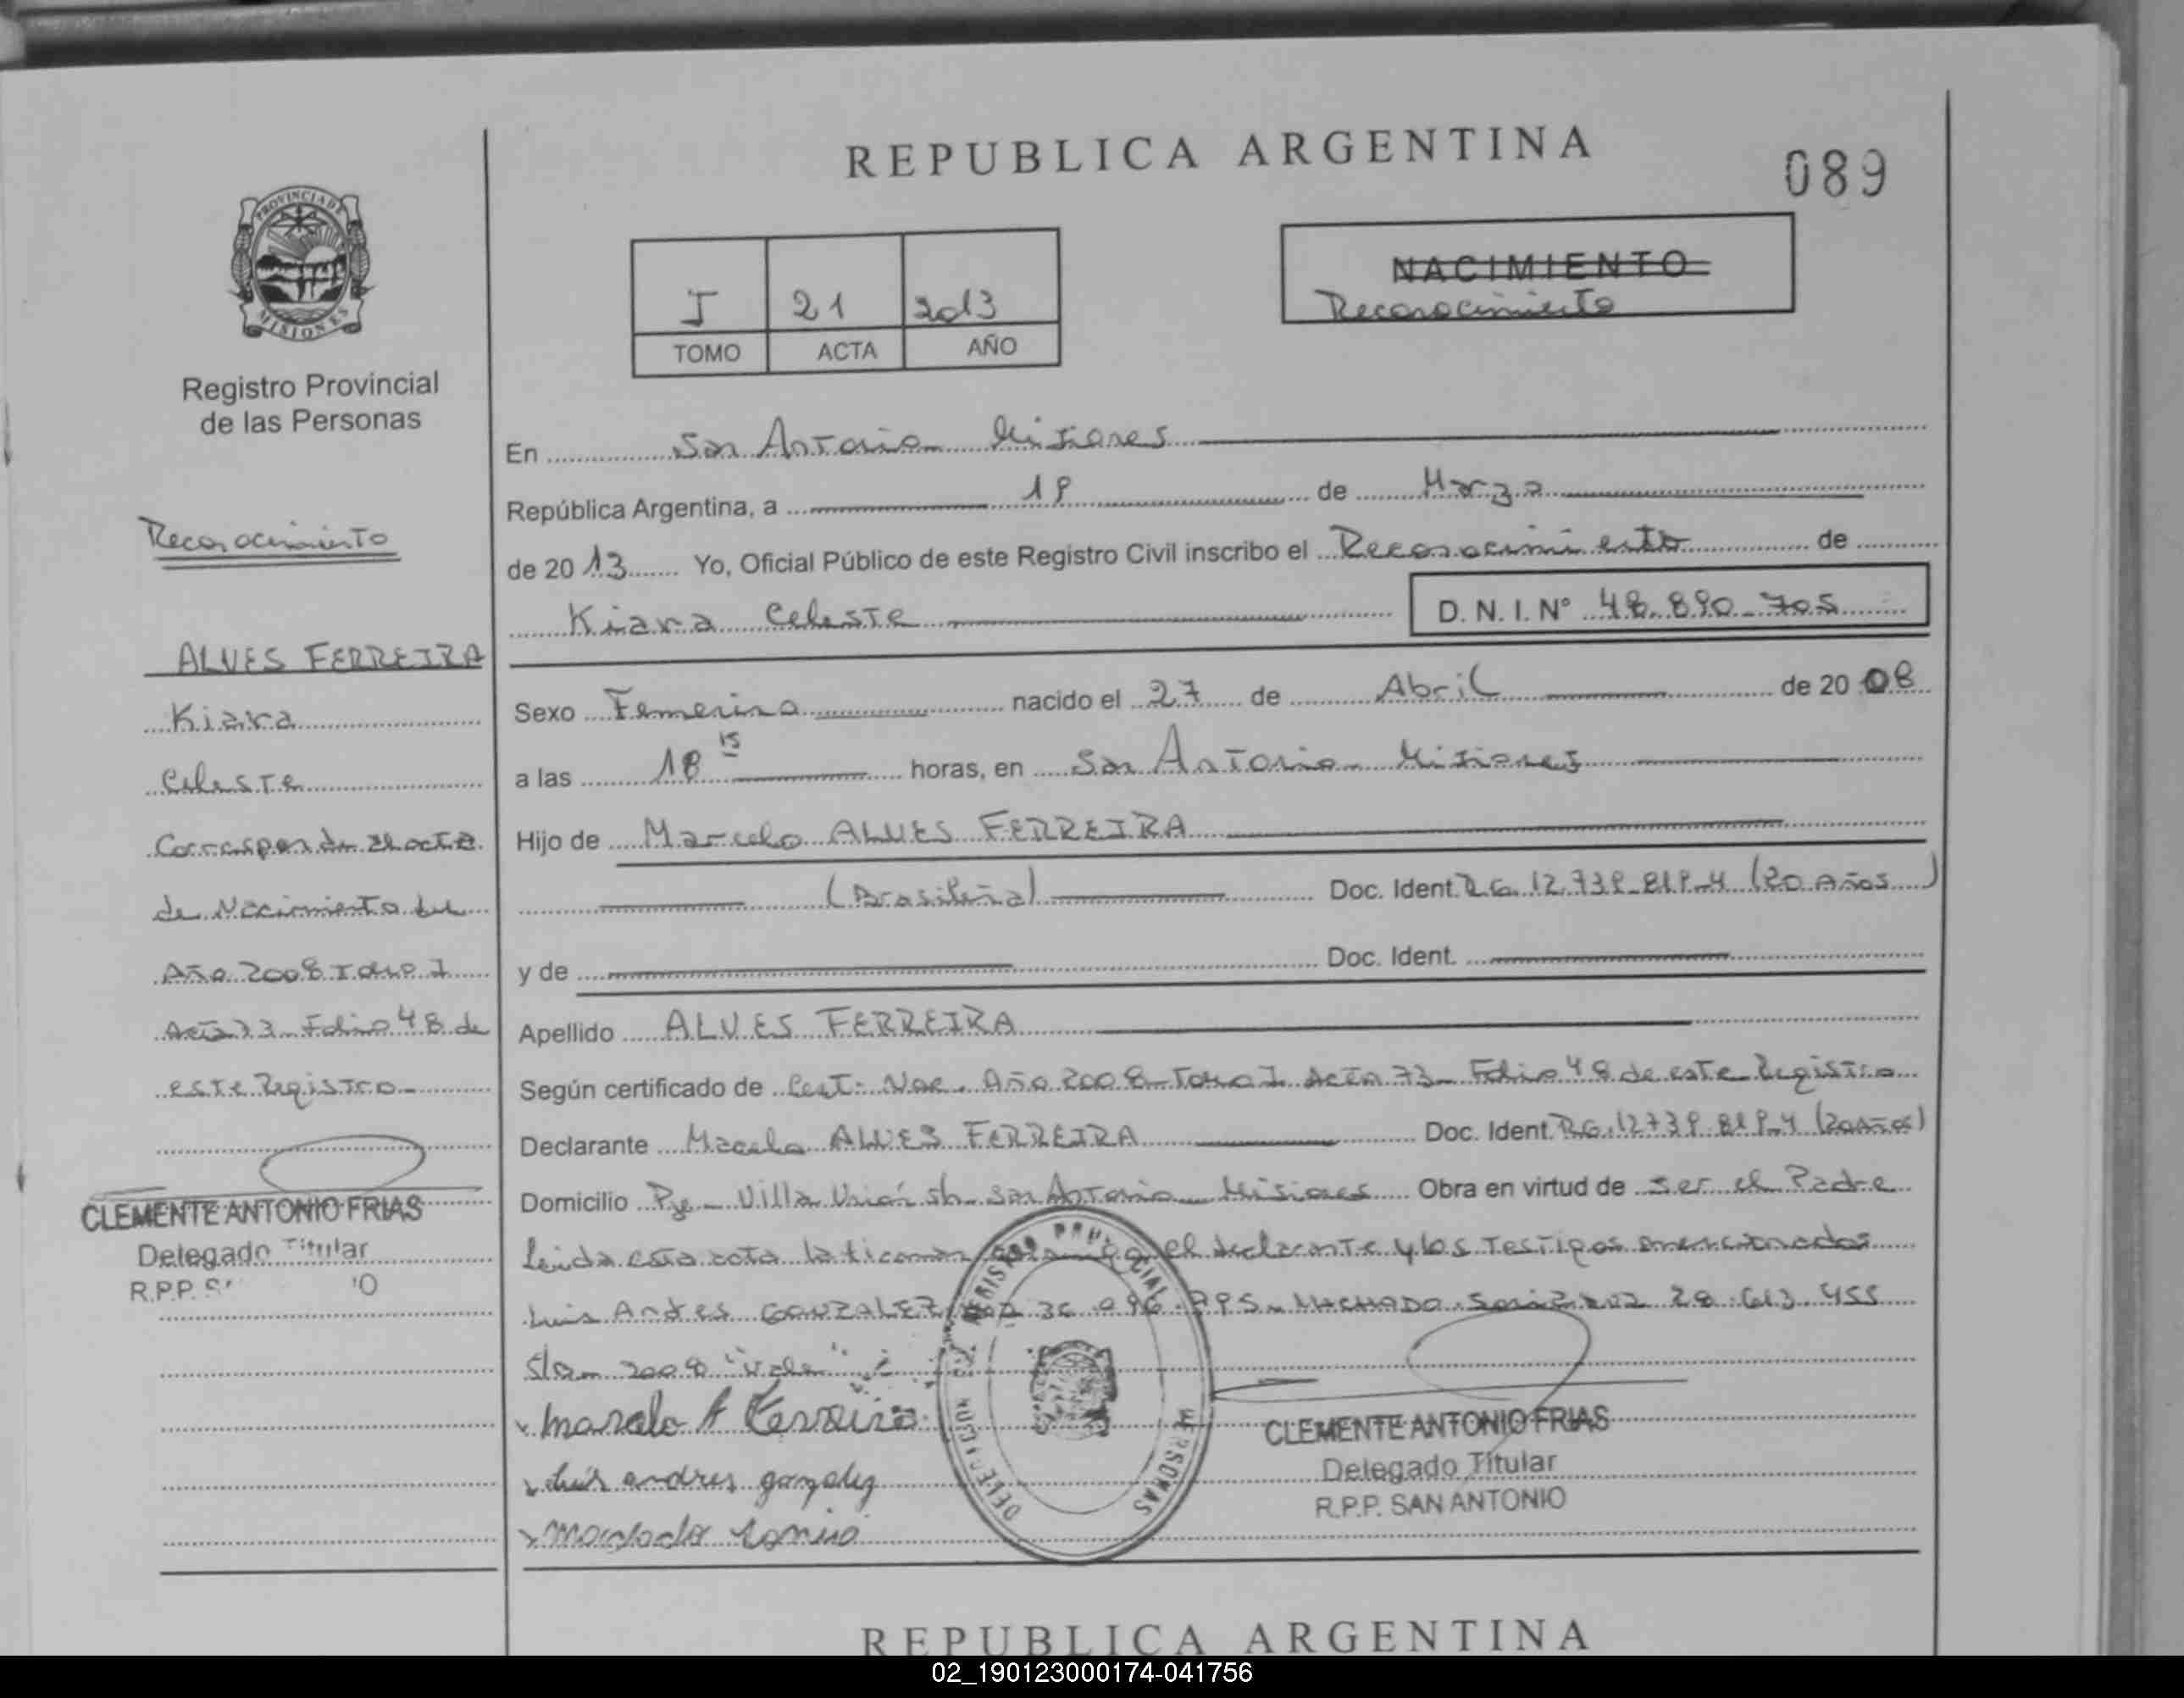 REPUBLICA ARGENTINA
089
PROVINCIA DE
MISIONES
Registro Provincial
de las Personas
I 21 2013
TOMO ACTA AÑO
NACIMIENTO
Reconocimiento
Reconocimiento
ALVES FERREIRA
Kiara
Celeste
Corresponde al acta
de Nacimiento del
Año 2008 Tomo I
Acta 73 Folio 48 de
este Registro
CLEMENTE ANTONIO FRIAS
Delegado Titular
R.P.P.
En San Antonio Misiones
República Argentina, a 19 de Marzo
de 2013 Yo, Oficial Público de este Registro Civil inscribo el Reconocimiento de
Kiara Celeste D. N. I. N° 48.890.705
Sexo Femenino nacido el 27 de Abril de 2008
a las 18 15 horas, en San Antonio Misiones
Hijo de Marcelo ALVES FERREIRA
(Brasileña) Doc. Ident. RG. 12.739.819-4 (20 Años)
y de Doc. Ident.
Apellido ALVES FERREIRA
Según certificado de Cert. Nac. Año 2008 Tomo I Acta 73 Folio 48 de este Registro
Declarante Marcelo ALVES FERREIRA Doc. Ident. RG. 12739.819-4 (20 Años)
Domicilio Pje Villa Unión s/n San Antonio Misiones Obra en virtud de ser el Padre
Leida esta acta la firman el declarante y los testigos mencionados
Luis Andres GONZALEZ MACHADO 28.613.455
S/R 2008 "Vale"
Marcelo A Ferreira
Luis andres gonzalez
Machado
CLEMENTE ANTONIO FRIAS
Delegado Titular
R.P.P. SAN ANTONIO
REPUBLICA ARGENTINA
02_190123000174-041756